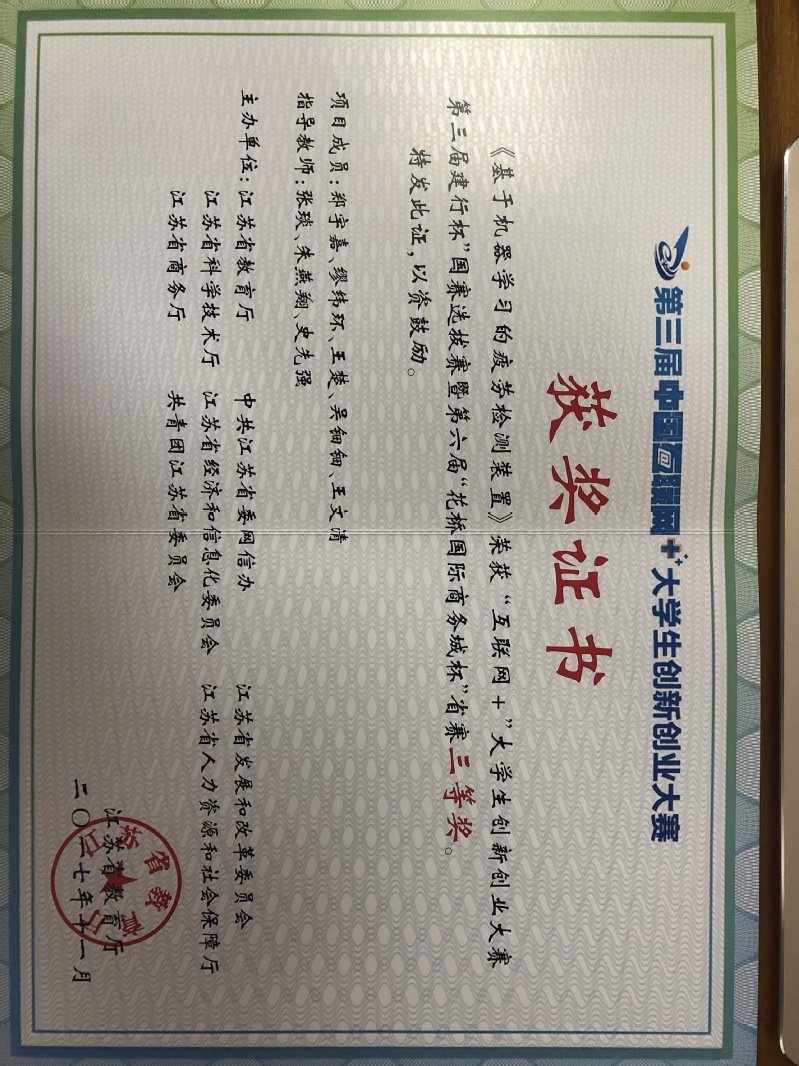 第三届中国互联网+大学生创新创业大赛
获奖证书
《基于机器学习的疲劳检测装置》荣获“互联网+”大学生创新创业大赛
第三届建行杯”国赛选拔赛暨第六届“花桥国际商务城杯”省赛三等奖。
特发此证，以资鼓励。
项目成员：郑宇嘉、缪纬环、王楚、吴钿钿、王文清
指导教师：张琰、朱燕翔、史先强
主办单位：江苏省教育厅 中共江苏省委网信办 江苏省发展和改革委员会
江苏省科学技术厅 江苏省经济和信息化委员会 江苏省人力资源和社会保障厅
江苏省商务厅 共青团江苏省委员会
江苏省教育厅
二〇一七年十一月